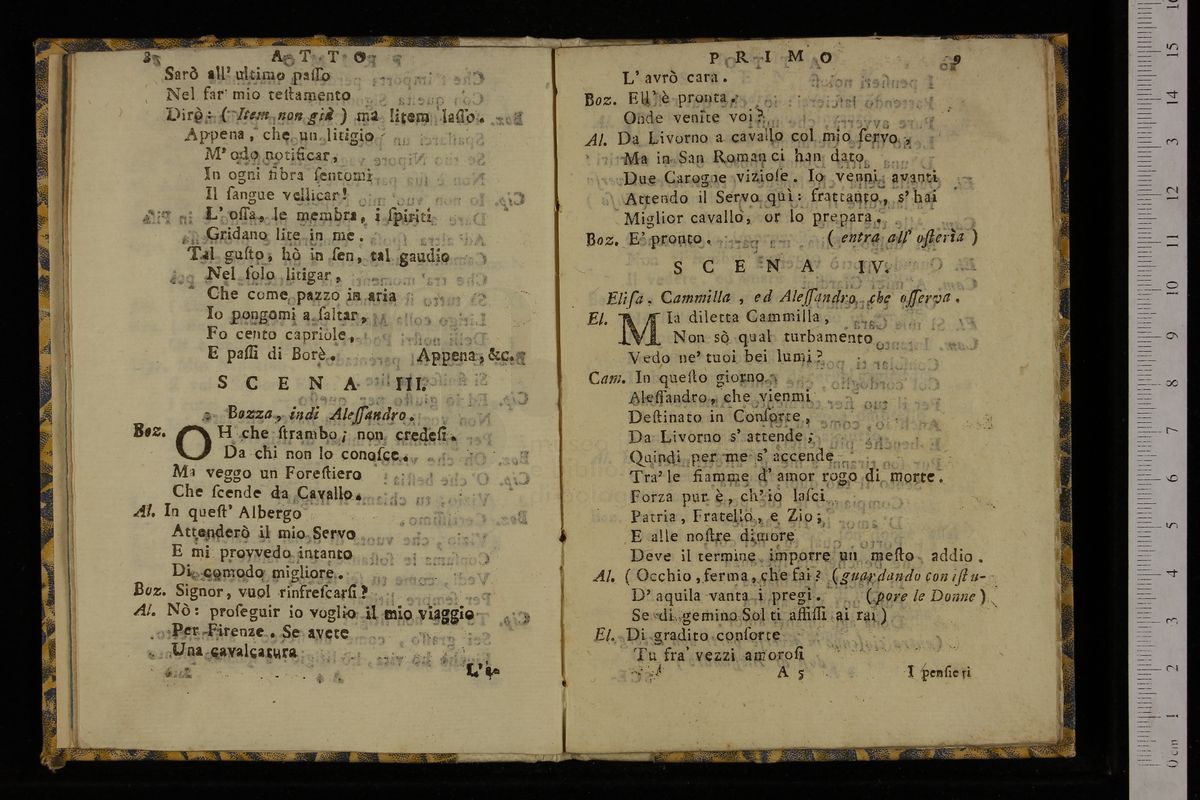 8 ATTO
Sarò all' ultimo paſſo
Nel far mio teſtamento
Dirò: (Item non già) ma litem laſſo.
Appena, che un litigio
M' odo notificar,
In ogni fibra ſentomi
Il ſangue vellicar!
L' oſſa, le membra, i ſpiriti
Gridano lite in me.
Tal guſto, hò in ſen, tal gaudio
Nel ſolo litigar,
Che come pazzo in aria
Io pongomi a ſaltar,
Fo cento capriole,
E paſſi di Borè. Appena, &c.
SCENA III.
Bozza, indi Aleſſandro.
Boz. OH che ſtrambo; non credeſi.
Da chi non lo conoſce.
Ma veggo un Foreſtiero
Che ſcende da Cavallo.
Al. In queſt' Albergo
Attenderò il mio Servo
E mi provvedo intanto
Di comodo migliore.
Boz. Signor, vuol rinfreſcarſi?
Al. Nò: proſeguir io voglio il mio viaggio
Per Firenze. Se avete
Una cavalcatura
L'a-
PRIMO 9
L' avrò cara.
Boz. Ell' è pronta.
Onde venite voi?
Al. Da Livorno a cavallo col mio ſervo,
Ma in San Roman ci han dato
Due Carogne vizioſe. Io venni avanti
Attendo il Servo quì: frattanto, s' hai
Miglior cavallo, or lo prepara.
Boz. E' pronto. (entra all' oſteria)
SCENA IV.
Eliſa, Cammilla, ed Aleſſandro che oſſerva.
El. MIa diletta Cammilla,
Non sò qual turbamento
Vedo ne' tuoi bei lumi?
Cam. In queſto giorno
Aleſſandro, che vienmi
Deſtinato in Conſorte,
Da Livorno s' attende;
Quindi per me s' accende
Tra' le fiamme d' amor rogo di morte.
Forza pur è, ch' io laſci
Patria, Fratello, e Zio;
E alle noſtre dimore
Deve il termine imporre un meſto addio.
Al. (Occhio, ferma, che fai? (guardando con iſtu-
D' aquila vanta i pregi. (pore le Donne)
Se di gemino Sol ti affiſſi ai rai)
El. Di gradito conſorte
Tu fra' vezzi amoroſi
A 5 I penſieri